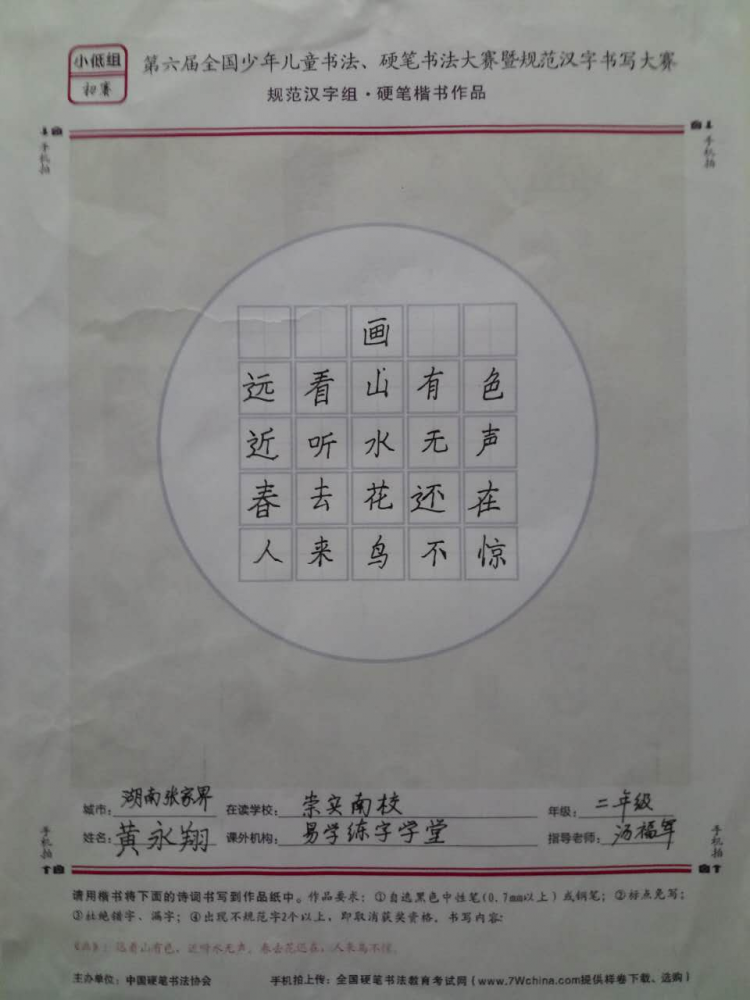 小低组
初赛
第六届全国少年儿童书法、硬笔书法大赛暨规范汉字书写大赛
规范汉字组·硬笔楷书作品
手机拍
手机拍
画
远看山有色
近听水无声
春去花还在
人来鸟不惊
城市：湖南张家界 在读学校：崇实南校 年级：二年级
姓名：黄永翔 课外机构：易学练字学堂 指导老师：汤福军
手机拍
手机拍
请用楷书将下面的诗词书写到作品纸中。作品要求：①自选黑色中性笔(0.7mm以上)或钢笔；②标点免写；
③杜绝错字、漏字；④出现不规范字2个以上，即取消获奖资格。书写内容：
《画》：远看山有色，近听水无声。春去花还在，人来鸟不惊。
主办单位：中国硬笔书法协会 手机拍上传：全国硬笔书法教育考试网（www.7Wchina.com提供样卷下载、选购）